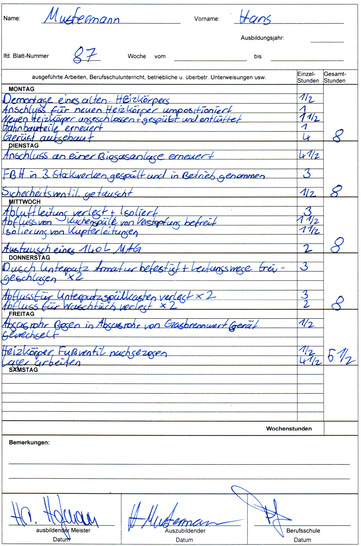 Name: Mustermann Vorname: Hans
Ausbildungsjahr:
lfd. Blatt-Nummer 87 Woche vom bis
ausgeführte Arbeiten, Berufsschulunterricht, betriebliche u. überbetr. Unterweisungen usw. Einzel-Stunden Gesamt-Stunden
MONTAG
Demontage eines alten Heizkörpers 1/2
Anschluss für neuen Heizkörper umpositioniert 1
Neuen Heizkörper angeschlossen + gespült und entlüftet 1 1/2
Bahnbauteile erneuert 1
Gerüst aufgebaut 4 8
DIENSTAG
Anschluss an einer Biogasanlage erneuert 4 1/2
FBH in 3 Stockwerken gespült und in Betrieb genommen 3
Sicherheitsventil getauscht 1/2 8
MITTWOCH
Abluftleitung verlegt + Isoliert 3
Abfluss von Küchenspüle von Verstopfung befreit 1 1/2
Isolierung von Kupferleitungen 1 1/2
Austausch eines 140L MAG 2 8
DONNERSTAG
Dusch Unterputz Armatur befestigt + Leitungswege
geschlagen x2 3
Abfluss für Unterputzspülkasten verlegt x2 3
Abfluss für Waschtisch verlegt x2 2 8
FREITAG
Abgasrohr Bogen in Abgasrohr von Gasbrennwert Gerät 1/2
gewechselt
Heizkörper Fußventil nachgezogen 1/2
Lager arbeiten 4 1/2 5 1/2
SAMSTAG
Wochenstunden
Bemerkungen:
Mustermann
ausbildender Meister Auszubildender Berufsschule
Datum Datum Datum